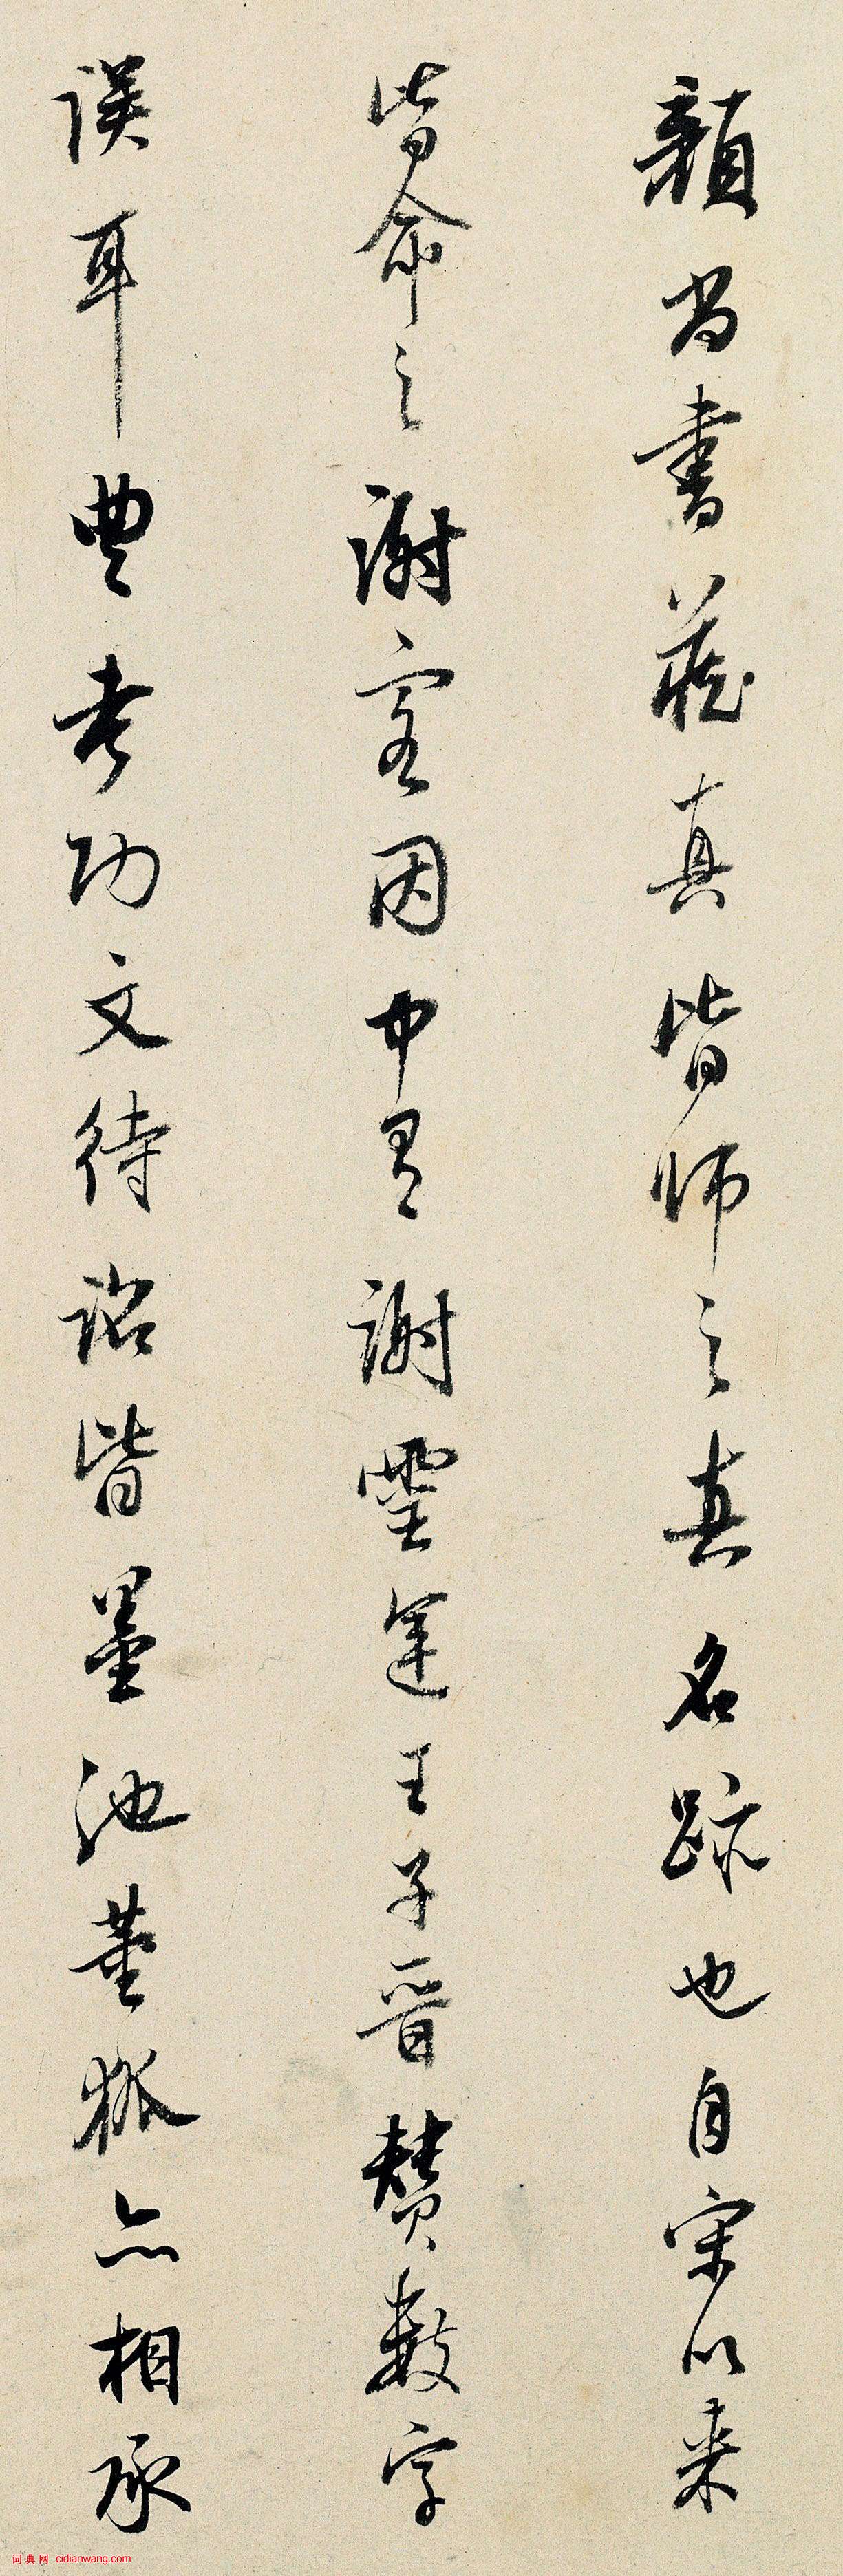 顏尚書藏真皆師之真名跡也自宋以来
皆命之謝客因中有謝靈運王子晋贊數字
誤耳豐考功文待詔皆墨池董狐亦相承
词典网 cidianwang.com